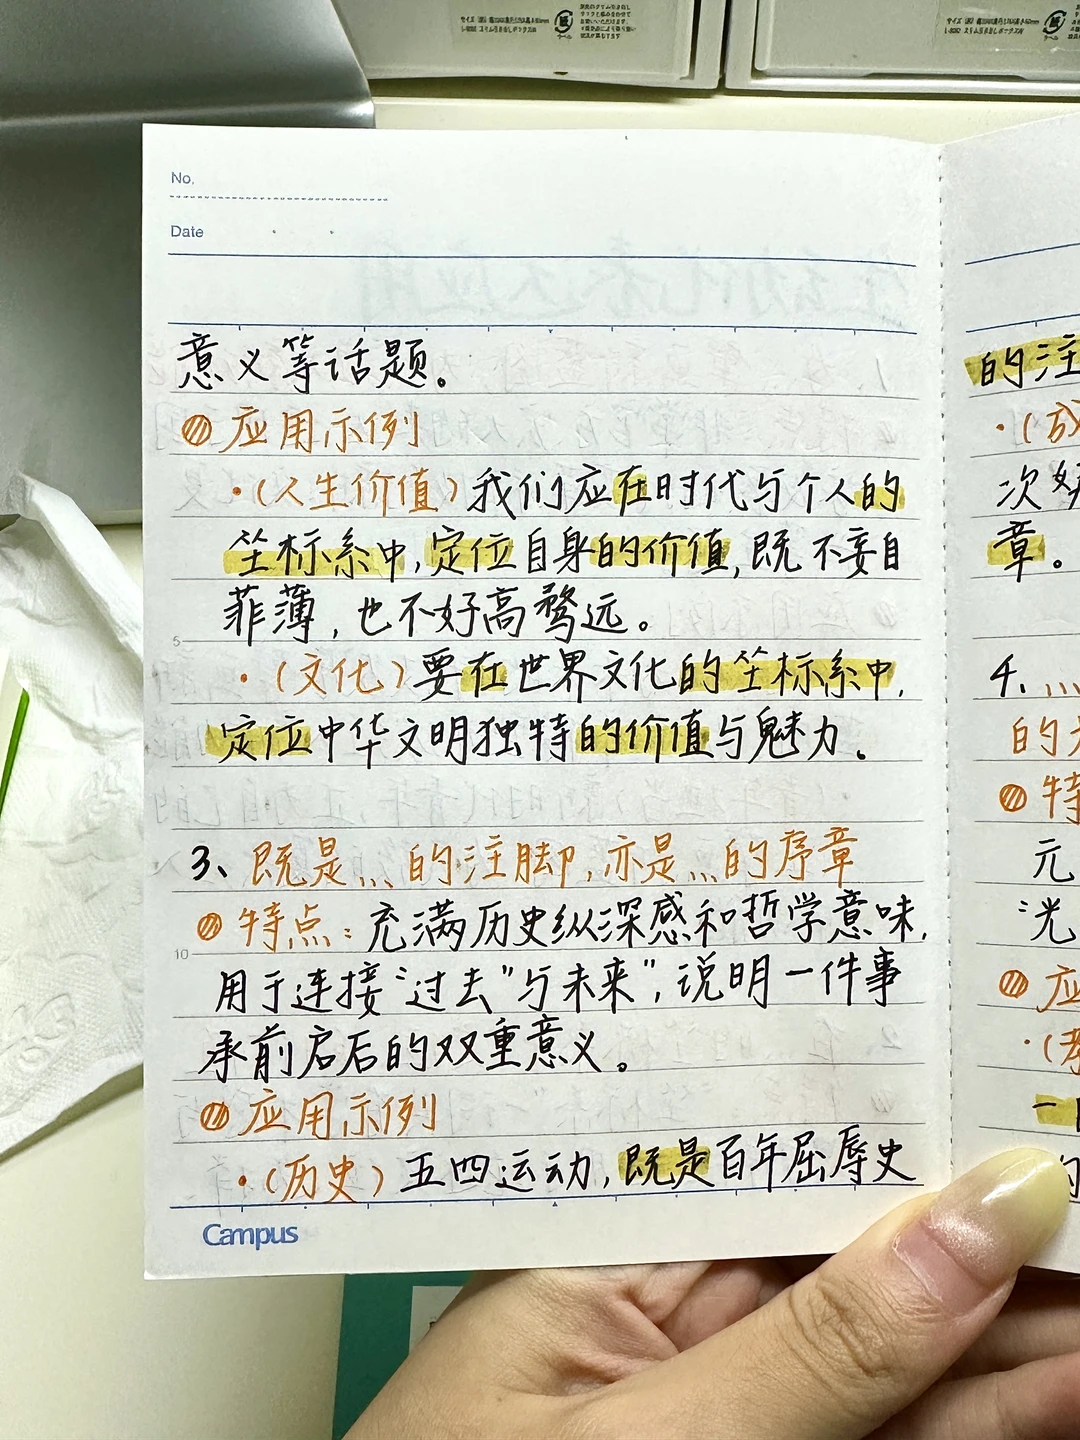 No.
Date
意义等话题。
应用示例
·(人生价值)我们应在时代与个人的
坐标系中,定位自身的价值,既不妄自
菲薄,也不好高骛远。
·(文化)要在世界文化的坐标系中,
定位中华文明独特的价值与魅力。
3、既是...的注脚,亦是...的序章
特点:充满历史纵深感和哲学意味,
用于连接“过去”与未来”,说明一件事
承前启后的双重意义。
应用示例
·(历史)五四运动,既是百年屈辱史
5
10
Campus
的注
次
章。
4、...
的
特
元
光
应